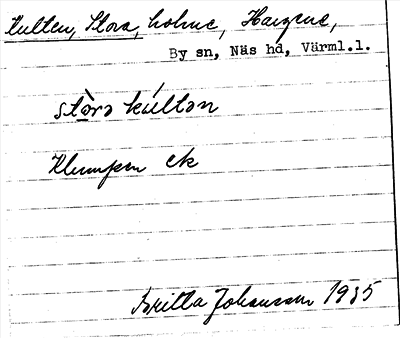 Kulten, Stora, holme, Hargene,
By sn, Näs hd, Värml.l.
stòrə kúltən
Klumpen ek
Britta Johansson 1935